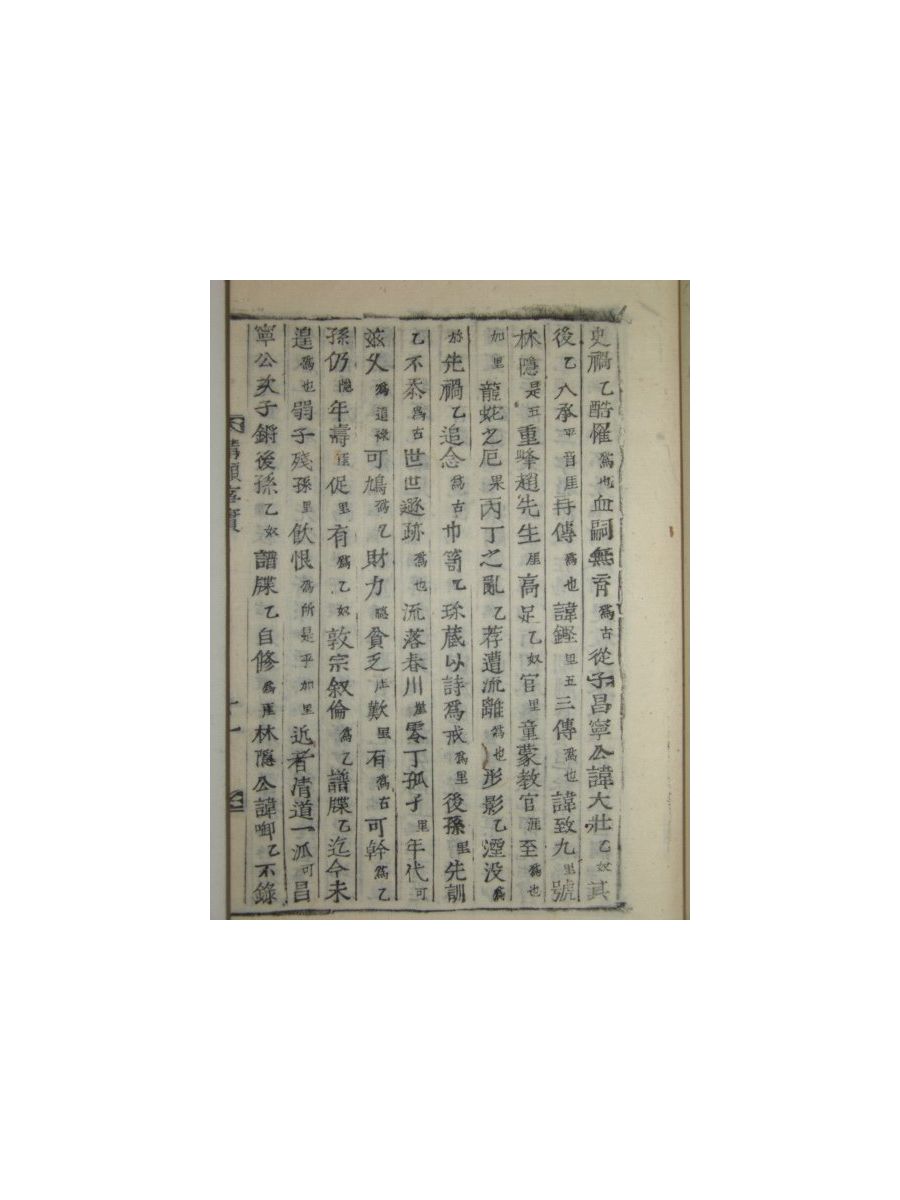 史禍乙酷罹爲也血嗣無育爲古從子昌寧公諱大壯乙奴其
後乙入承乎音厓再傳爲也諱鏗里五三傳爲也諱致九里號
林隱是五重峰趙先生厓高足乙奴官里童蒙教官涯至爲也
加里龍蛇之厄果丙丁之亂乙荐遭流離爲也形影乙湮没爲
於先禍乙追念爲古巾笥乙珎蔵以詩爲戒爲里後孫里先訓
乙不忝爲古世世遯跡爲也流落春川崖零丁孤子里年代可
玆乆爲遣祿可鳩爲乙財力隱貧乏歎里有爲古可幹爲乙
孫仍隱年壽厓促里有爲乙奴敦宗叙倫爲乙譜牒乙迄今未
遑爲也弱子殘孫里飲恨爲所是乎加里近者清道一派可昌
寧公次子鏘後孫乙奴譜牒乙自修爲厓林隱公諱啣乙不錄